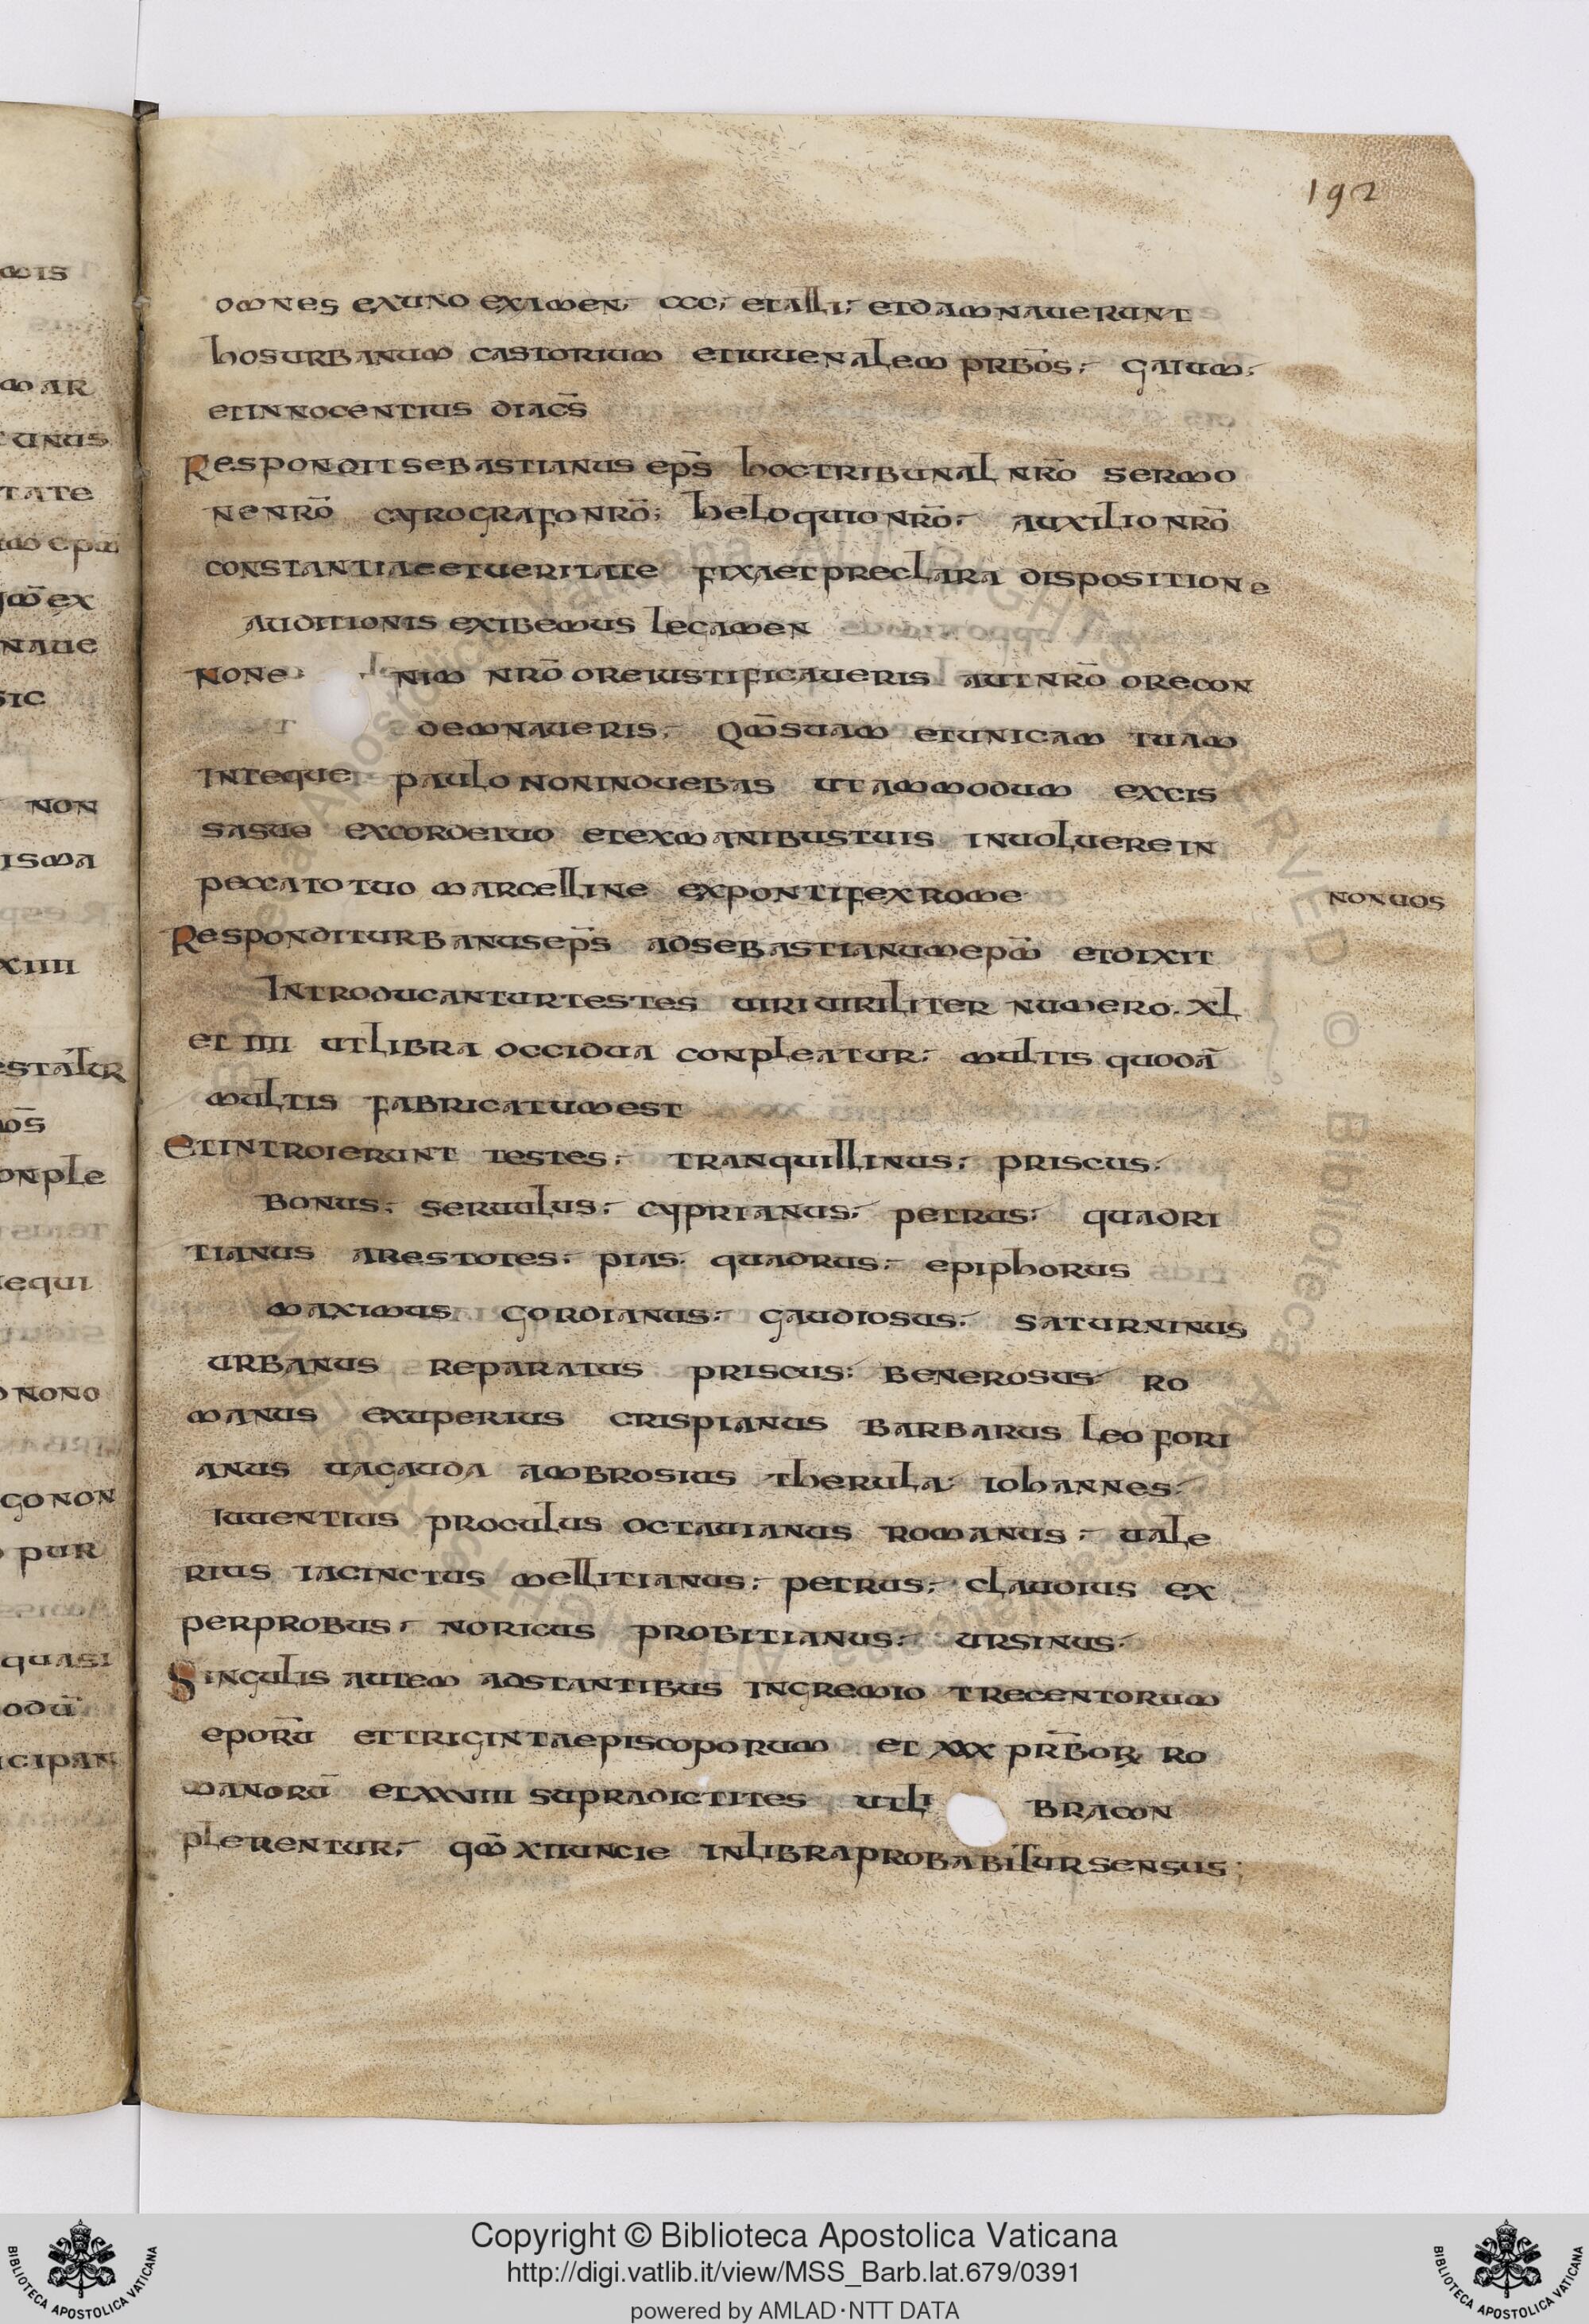 192
omnes exuno examen; ccc; etalii; etdamnauerunt
hosurbanum castorium etiuuenalem prbo̅s; gaium;
etinnocentius diac̅s
Respondit sebastianus ep̅s hoctribunal nr̅o sermo
nenr̅o cyrografonr̅o; heloquionr̅o; auxilionr̅o
constantiaeetueritate fixaetpreclara disposition e
auditionis exibemus legamen
none nim nr̅o oreiustificaueris autnr̅o orecon
demnaueris; Qm̅suam etunicam tuam
Inteque paulo noninduebas utammodum excis
sasue excordetuo etexmanibustuis inuoluerein
peccato tuo marcelline expontifexrome
nonuos
Responditurbanusep̅s adsebastianumepm̅ etdixit
Introducanturtestes uiriuiriliter numero. xl
et iiii utlibra occidua conpleatur; multis quoda̅
multis fabricatumest
Etintroierunt testes; tranquillinus; priscus;
bonus; seruulus; cyprianus; petrus; quadri
tianus arestotes; pias; quadrus; epiphorus
maximus gordianus; gaudiosus; saturninus
urbanus reparatus priscus; benerosus; ro
manus exuperius crispianus barbarus leo fori
anus uagauda ambrosius therula; iohannes;
iuuentius proculus octauianus romanus; uale
rius iacinctus mellitianus; petrus; claudius ex
perprobus; noricus probitianus; ursinus;
Singulis autem adstantibus ingremio trecentorum
eporu̅ ettrigintaepiscoporum et xxx pr̅borꝝ ro
manoru̅ etxxiiii supradictites utli bracon
plerentur; qm̅ xiiuncie inlibraprobabitursensus;
mis
mar
unus
tate
m epm̅
m̅ ex
naue
sic
non
isma
xiiii
estatur
onple
equi
nono
gonon
pur
quasi
odu̅
icipan
Copyright © Biblioteca Apostolica Vaticana
http://digi.vatlib.it/view/MSS_Barb.lat.679/0391
powered by AMLAD·NTT DATA
BIBLIOTECA APOSTOLICA VATICANA
BIBLIOTECA APOSTOLICA VATICANA